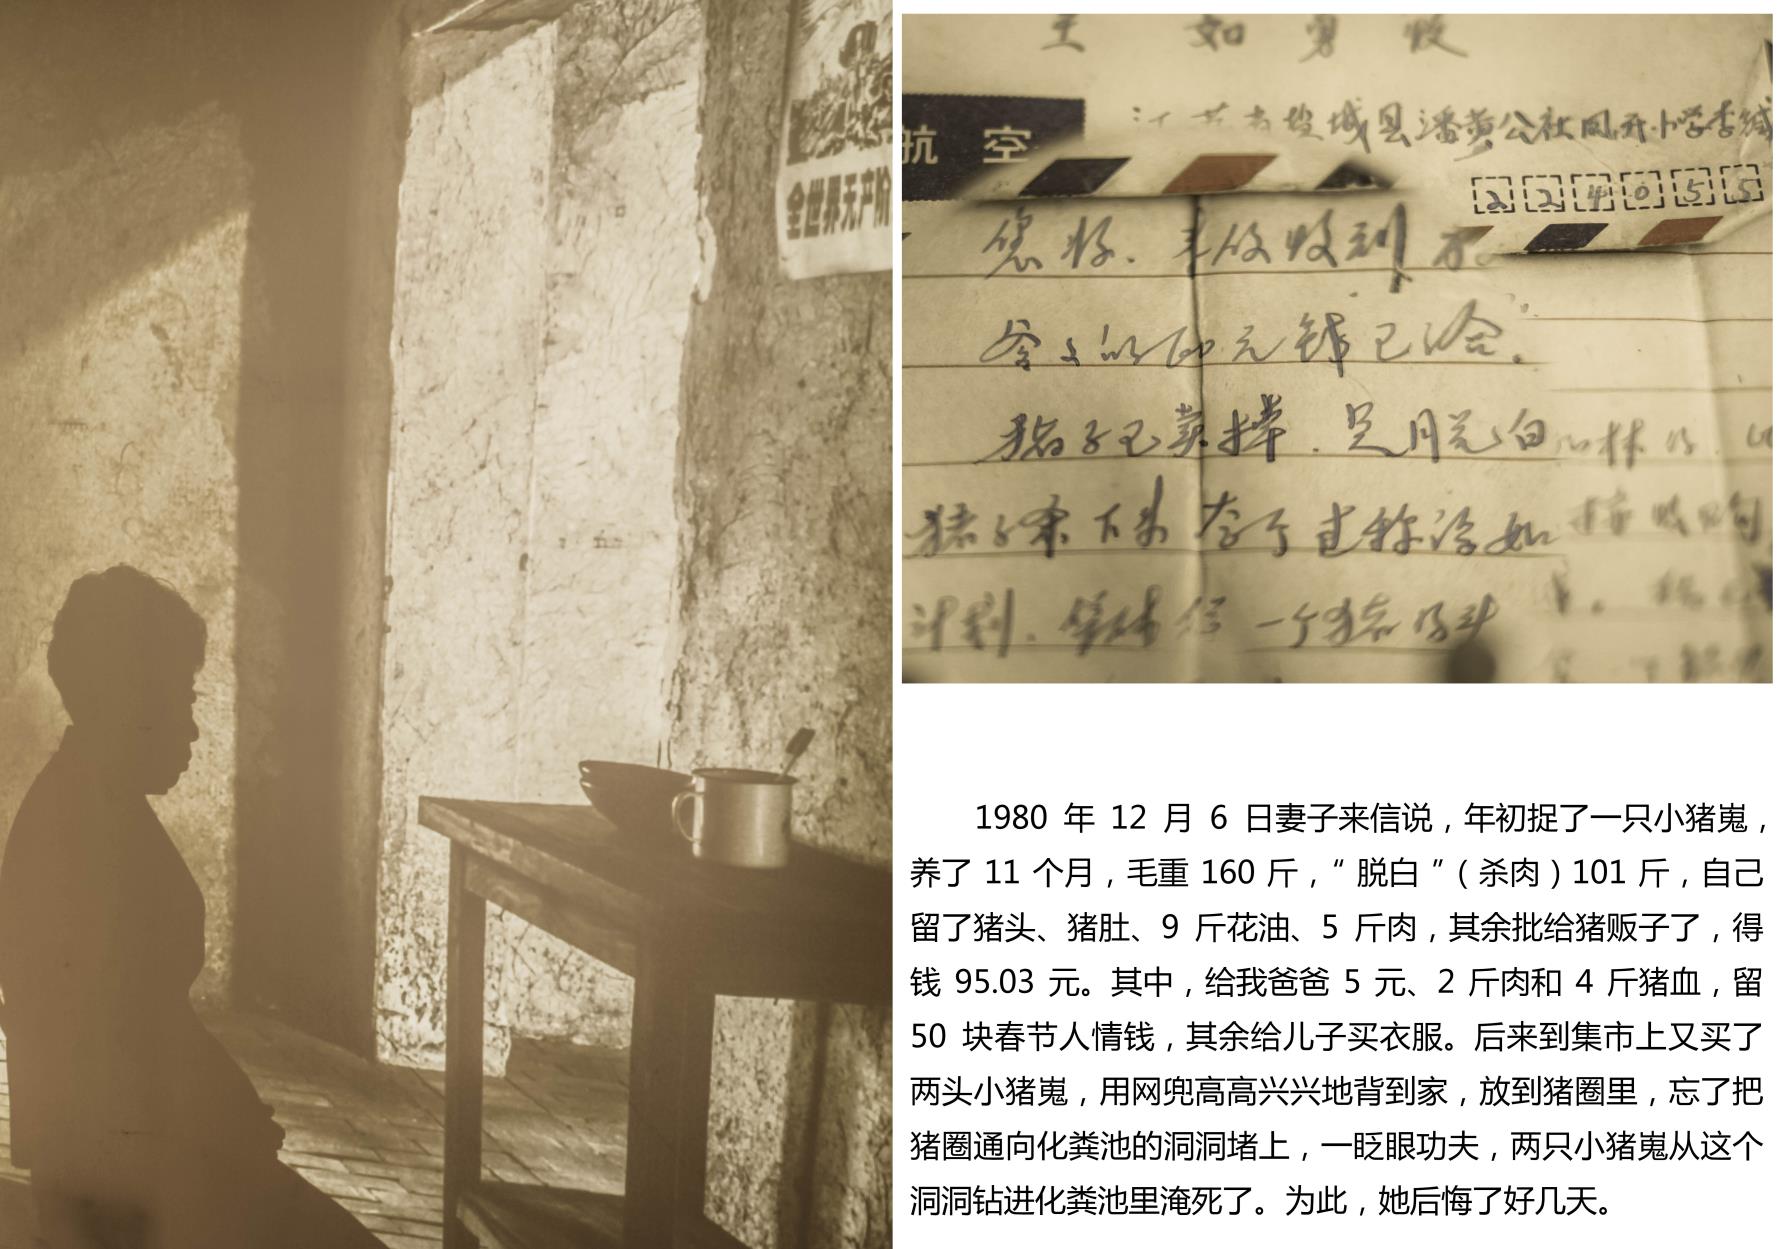 全世界无产阶
王 如 勇 收
江苏省盐城县潘黄公社凤开小学李缄
航 空
224055
您好。来信收到
爸爸的 元钱已
猪子已卖掉。足月脱白
猪子杀下来 过称
计划。 一个猪的
1980 年 12 月 6 日妻子来信说，年初捉了一只小猪嵬，
养了 11 个月，毛重 160 斤，“ 脱白 ”（ 杀肉 ）101 斤，自己
留了猪头、猪肚、9 斤花油、5 斤肉，其余批给猪贩子了，得
钱 95.03 元。其中，给我爸爸 5 元、2 斤肉和 4 斤猪血，留
50 块春节人情钱，其余给儿子买衣服。后来到集市上又买了
两头小猪嵬，用网兜高高兴兴地背到家，放到猪圈里，忘了把
猪圈通向化粪池的洞洞堵上，一眨眼功夫，两只小猪嵬从这个
洞洞钻进化粪池里淹死了。为此，她后悔了好几天。